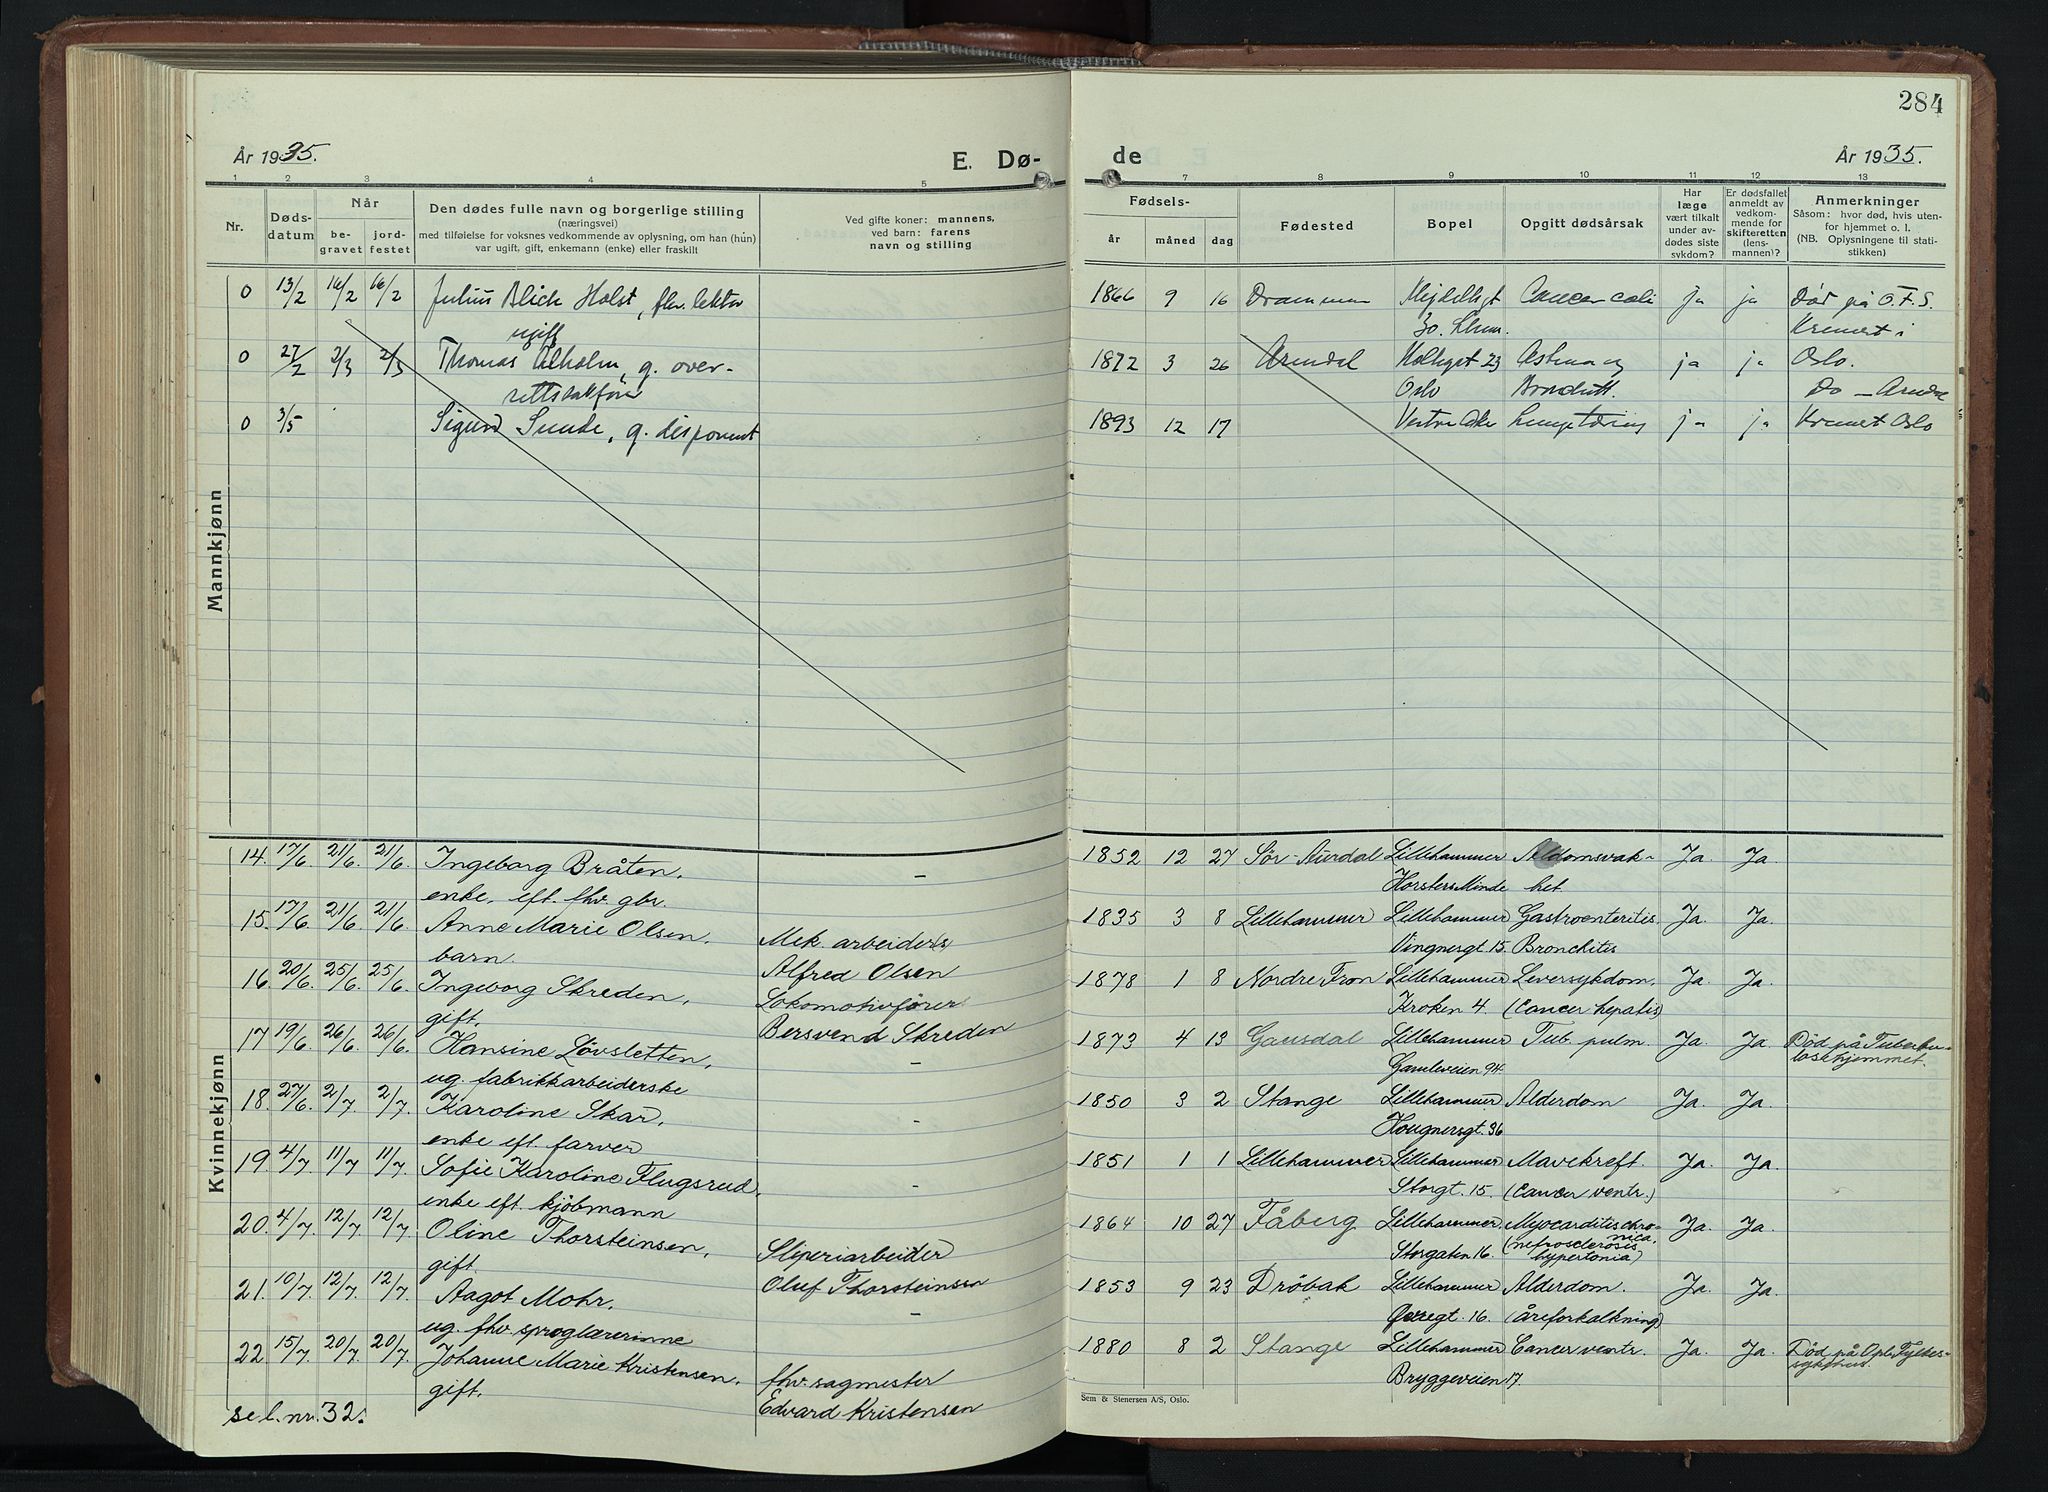 284
År 1935.
E. Dø-
de
År 1935.
1 2 3 4 5 7 8 9 10 11 12 13
Nr.
Døds-
datum
Når
be-
gravet
jord-
festet
Den dødes fulle navn og borgerlige stilling
(næringsvei)
med tilføielse for voksnes vedkommende av oplysning, om han (hun)
var ugift, gift, enkemann (enke) eller fraskilt
Ved gifte koner: mannens,
ved barn: farens
navn og stilling
Fødsels-
år måned dag
Fødested
Bopel
Opgitt dødsårsak
Har
læge
vært tilkalt
under av-
dødes siste
sykdom?
Er dødsfallet
anmeldt av
vedkom-
mende for
skifteretten
(lens-
mannen)?
Anmerkninger
Såsom: hvor død, hvis uten-
for hjemmet o. l.
(NB. Oplysningene til stati-
stikken)
Mannkjønn
0 13/2 16/2 16/2 Julius Blich Holst, fhv. lektor 1866 9 16 Drammen Cancer coli ja ja Død på O.F.S.
ugift Kremert i
0 27/2 2/3 2/3 Thomas Alholm, g. over- 1872 3 26 Arendal 23 Astma og ja ja Oslo.
rettssakfører Oslo Bronchitt. Do — Arendal
0 3/5 Sigurd Sunde, g. disponent 1893 12 17 Vestre Aker Lungetæring ja ja Kremert Oslo
Kvinnekjønn
14. 17/6. 21/6. 21/6. Ingeborg Bråten, - 1852 12 27 Sør-Aurdal Lillehammer Alldomsvak- Ja. Ja.
enke, eft. fhv. gbr. Horsters Minde het
15. 17/6. 21/6. 21/6. Anne Marie Olsen. Mek. arbeiders 1835 3 8 Lillehammer Lillehammer Gastroenteritis Ja. Ja.
barn. Alfred Olsen Vingnesgt. 15. Bronchitis
16. 20/6. 25/6. 25/6. Ingeborg Skreden, Lokomotivfører 1878 1 8 Nordre Fron Lillehammer Leversykdom. Ja. Ja.
gift. Bersvend Skreden Kroken 4. (Cancer hepatis)
17 19/6. 26/6. 26/6. Hansine Løvsletten, - 1873 4 13 Gausdal Lillehammer Tub. pulm. Ja. Ja. Død på Tuberku-
ug. fabrikkarbeiderske Gamleveien 94. losehjemmet.
18. 27/6. 2/7. 2/7. Karoline Skar, - 1850 3 2 Stange Lillehammer Alderdom Ja. Ja.
enke eft. farver Hougnersgt. 36
19. 4/7. 11/7. 11/7. Sofie Karoline Flugsrud, - 1851 1 1 Lillehammer Lillehammer Mavekreft. Ja. Ja.
enke eft. kjøbmann Storgt. 15. (Cancer ventr.)
20. 4/7. 12/7. 12/7. Oline Thorsteinsen, Sliperiarbeider 1864 10 27 Fåberg Lillehammer. Myocarditis chro- Ja. Ja.
nica.
gift. Oluf Thorsteinsen Storgaten 16. (nefrosclerosis
hypertonia)
21. 10/7. 12/7. 12/7. Aagot Mohr. - 1853 9 23 Drøbak Lillehammer Alderdom. Ja. Ja.
ug. fhv. sproglærerinne 16. (åreforkalkning)
22 15/7. 20/7. 20/7. Johanne Marie Kristensen. fhv. sagmester 1880 8 2 Stange Lillehammer Cancer ventr. Ja. Ja. Død på Opl. Fylkes-
sykehus.
gift. Edvard Kristensen Bryggeveien 17.
se l. nr. 32.
Sem & Stenersen A/S, Oslo.